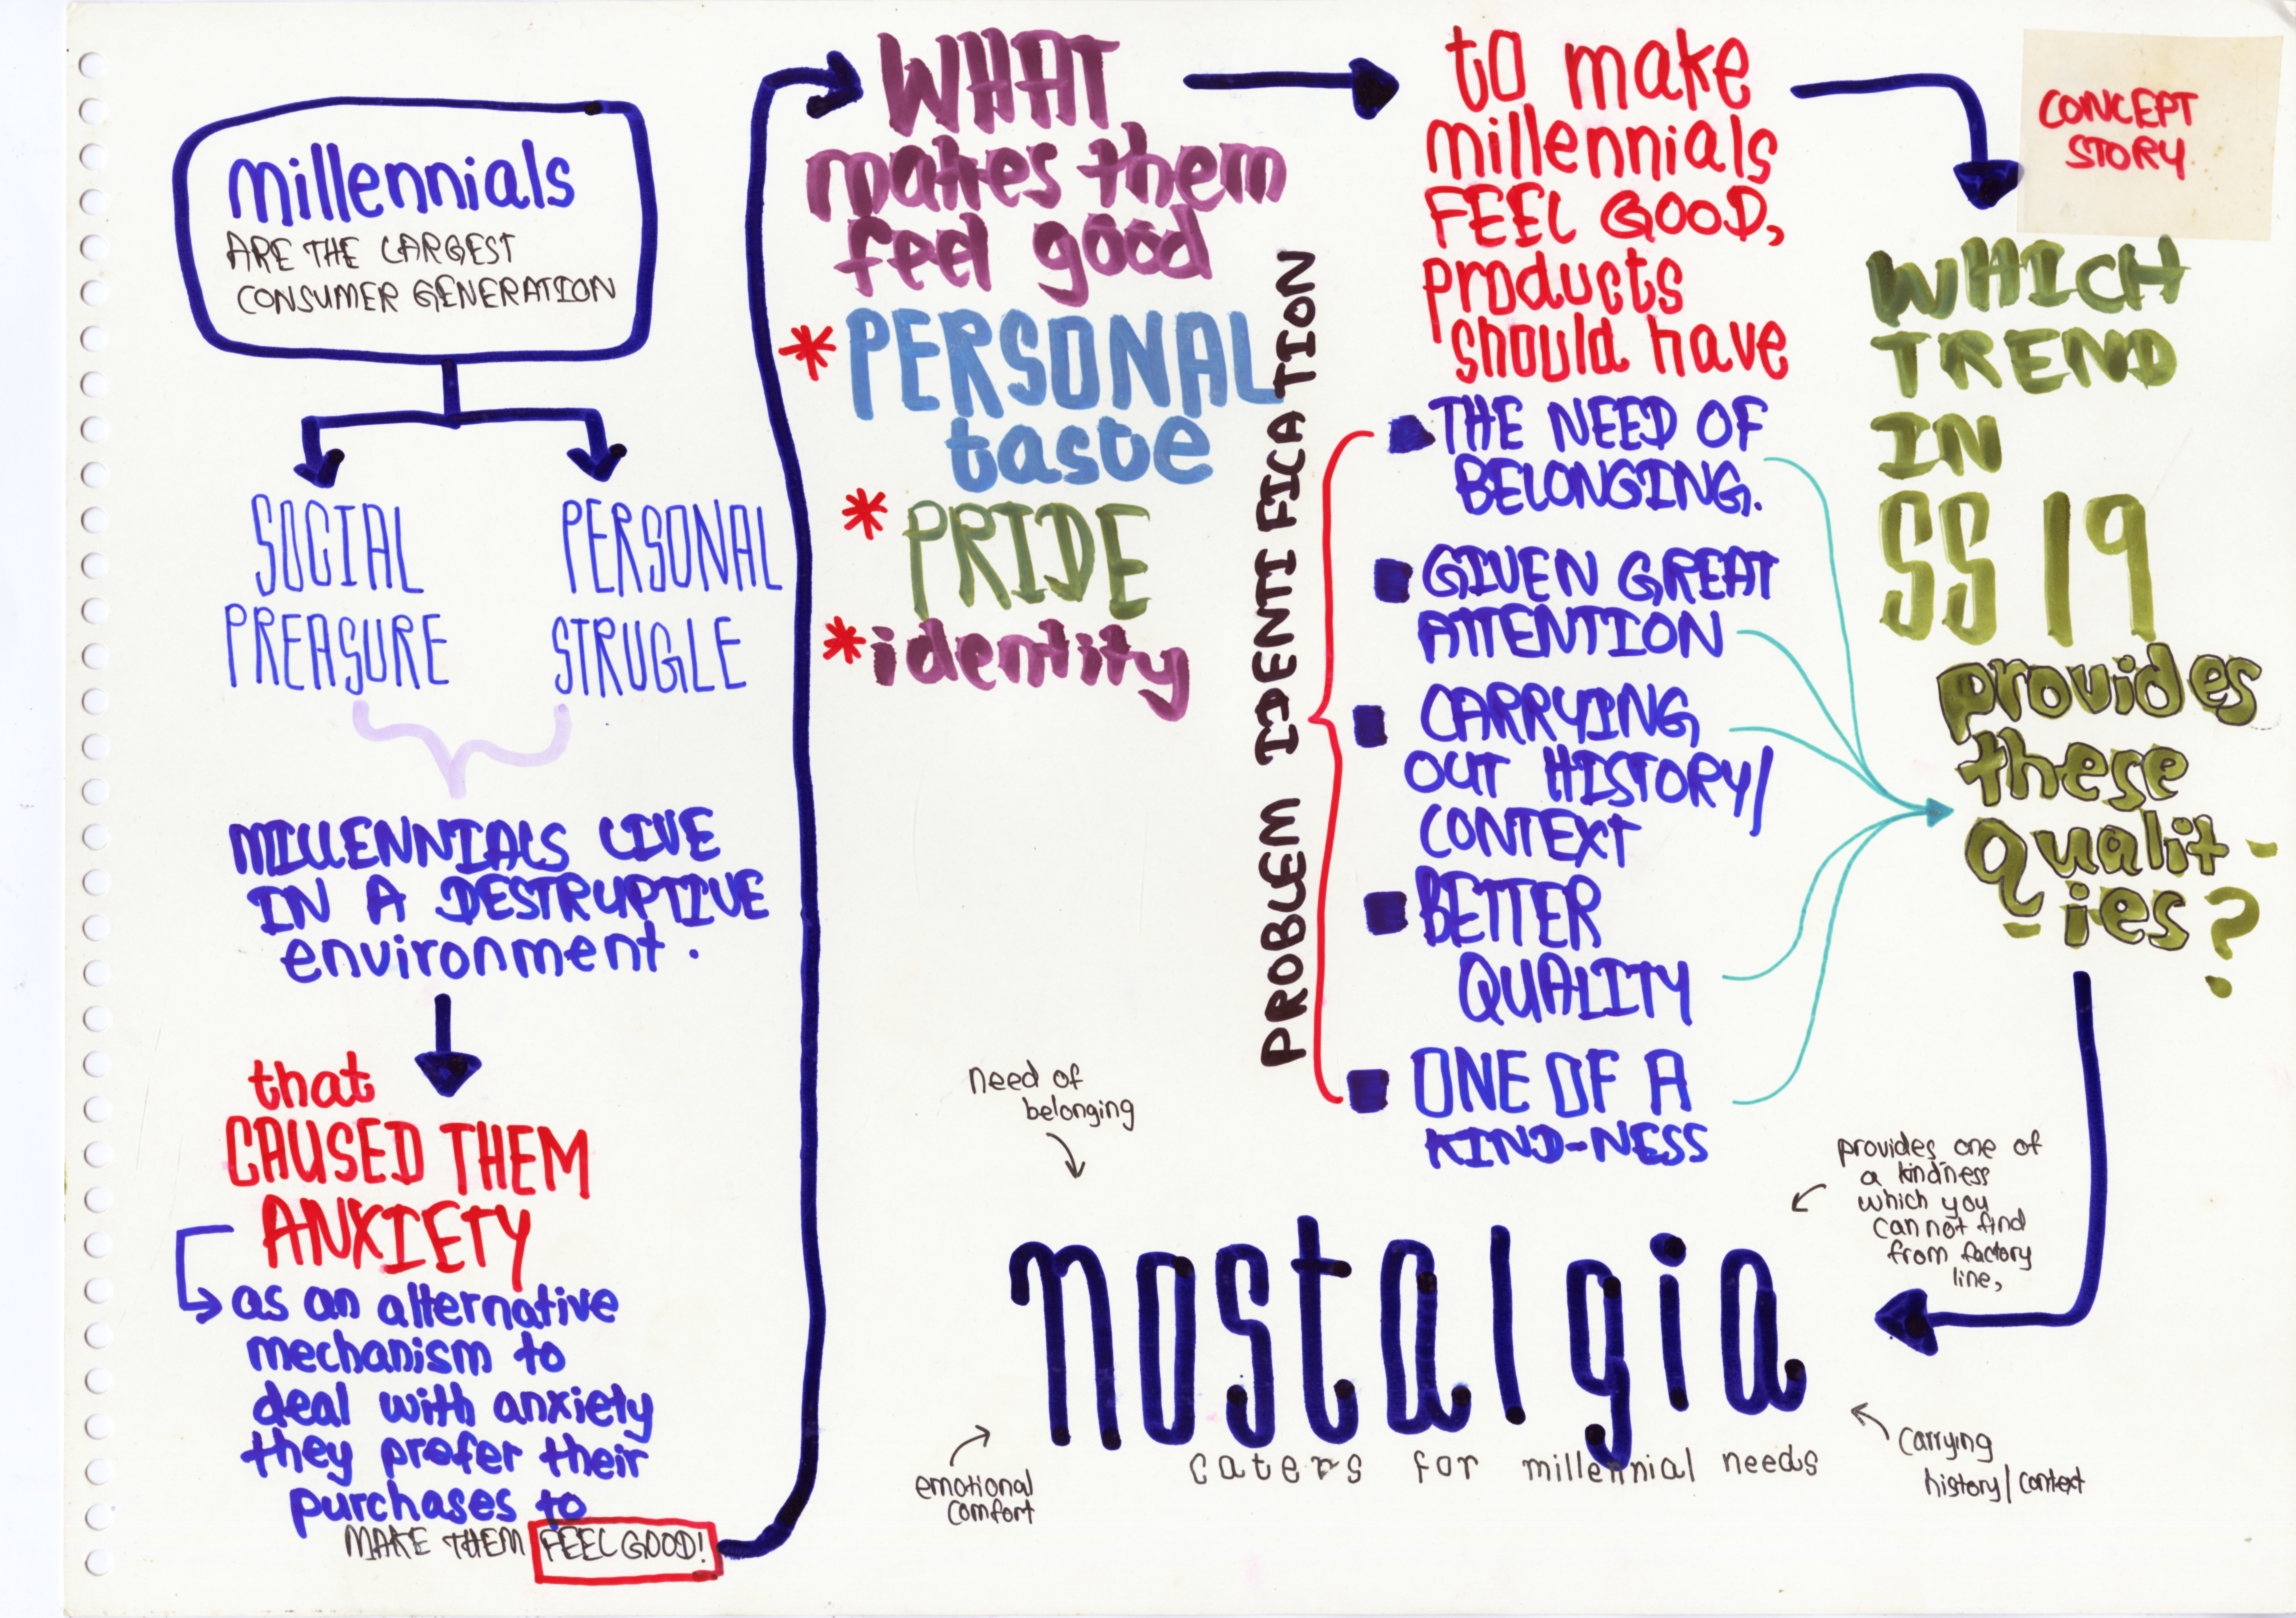 millennials
ARE THE LARGEST
CONSUMER GENERATION
SOCIAL
PREASURE
PERSONAL
STRUGLE
MILLENNIALS LIVE
IN A DESTRUPTIVE
environment.
that
CAUSED THEM
ANXIETY
as an alternative
mechanism to
deal with anxiety
they prefer their
purchases to
MAKE THEM FEEL GOOD!
WHAT
makes them
feel good
* PERSONAL
taste
* PRIDE
* identity
PROBLEM IDENTIFICATION
to make
millennials
FEEL GOOD,
products
should have
THE NEED OF
BELONGING.
GIVEN GREAT
ATTENTION
CARRYING
OUT HISTORY/
CONTEXT
BETTER
QUALITY
ONE OF A
KIND-NESS
CONCEPT
STORY
WHICH
TREND
IN
SS 19
provides
these
Qualit-
-ies?
need of
belonging
provides one of
a kindness
which you
can not find
from factory
line,
nostalgia
caters for millennial needs
emotional
comfort
carrying
history/context